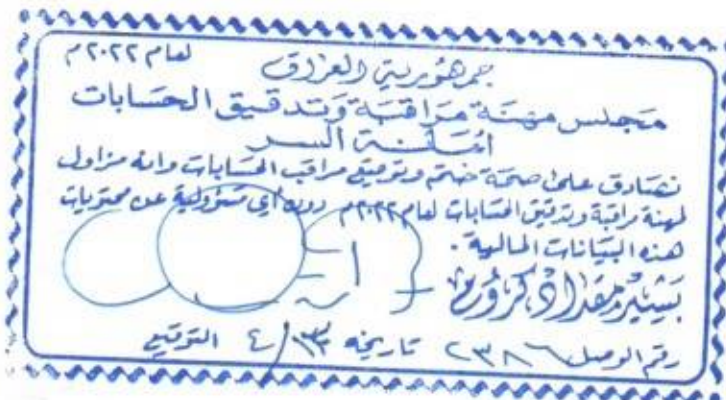 لعام ٢٠٢٢م
جمهورية العراق
مجلس مهنة مراقبة وتدقيق الحسابات
أمانة السر
نصادق على صحة ختم وتوقيع مراقب الحسابات وانه مزاول
لمهنة مراقبة وتدقيق الحسابات لعام ٢٠٢٢م دون أي مسؤولية عن محتويات
هذه البيانات المالية.
بشير مقداد كرؤم
رقم الوصل ٢٣٨٦ تاريخه ٤/١٣ التوقيع